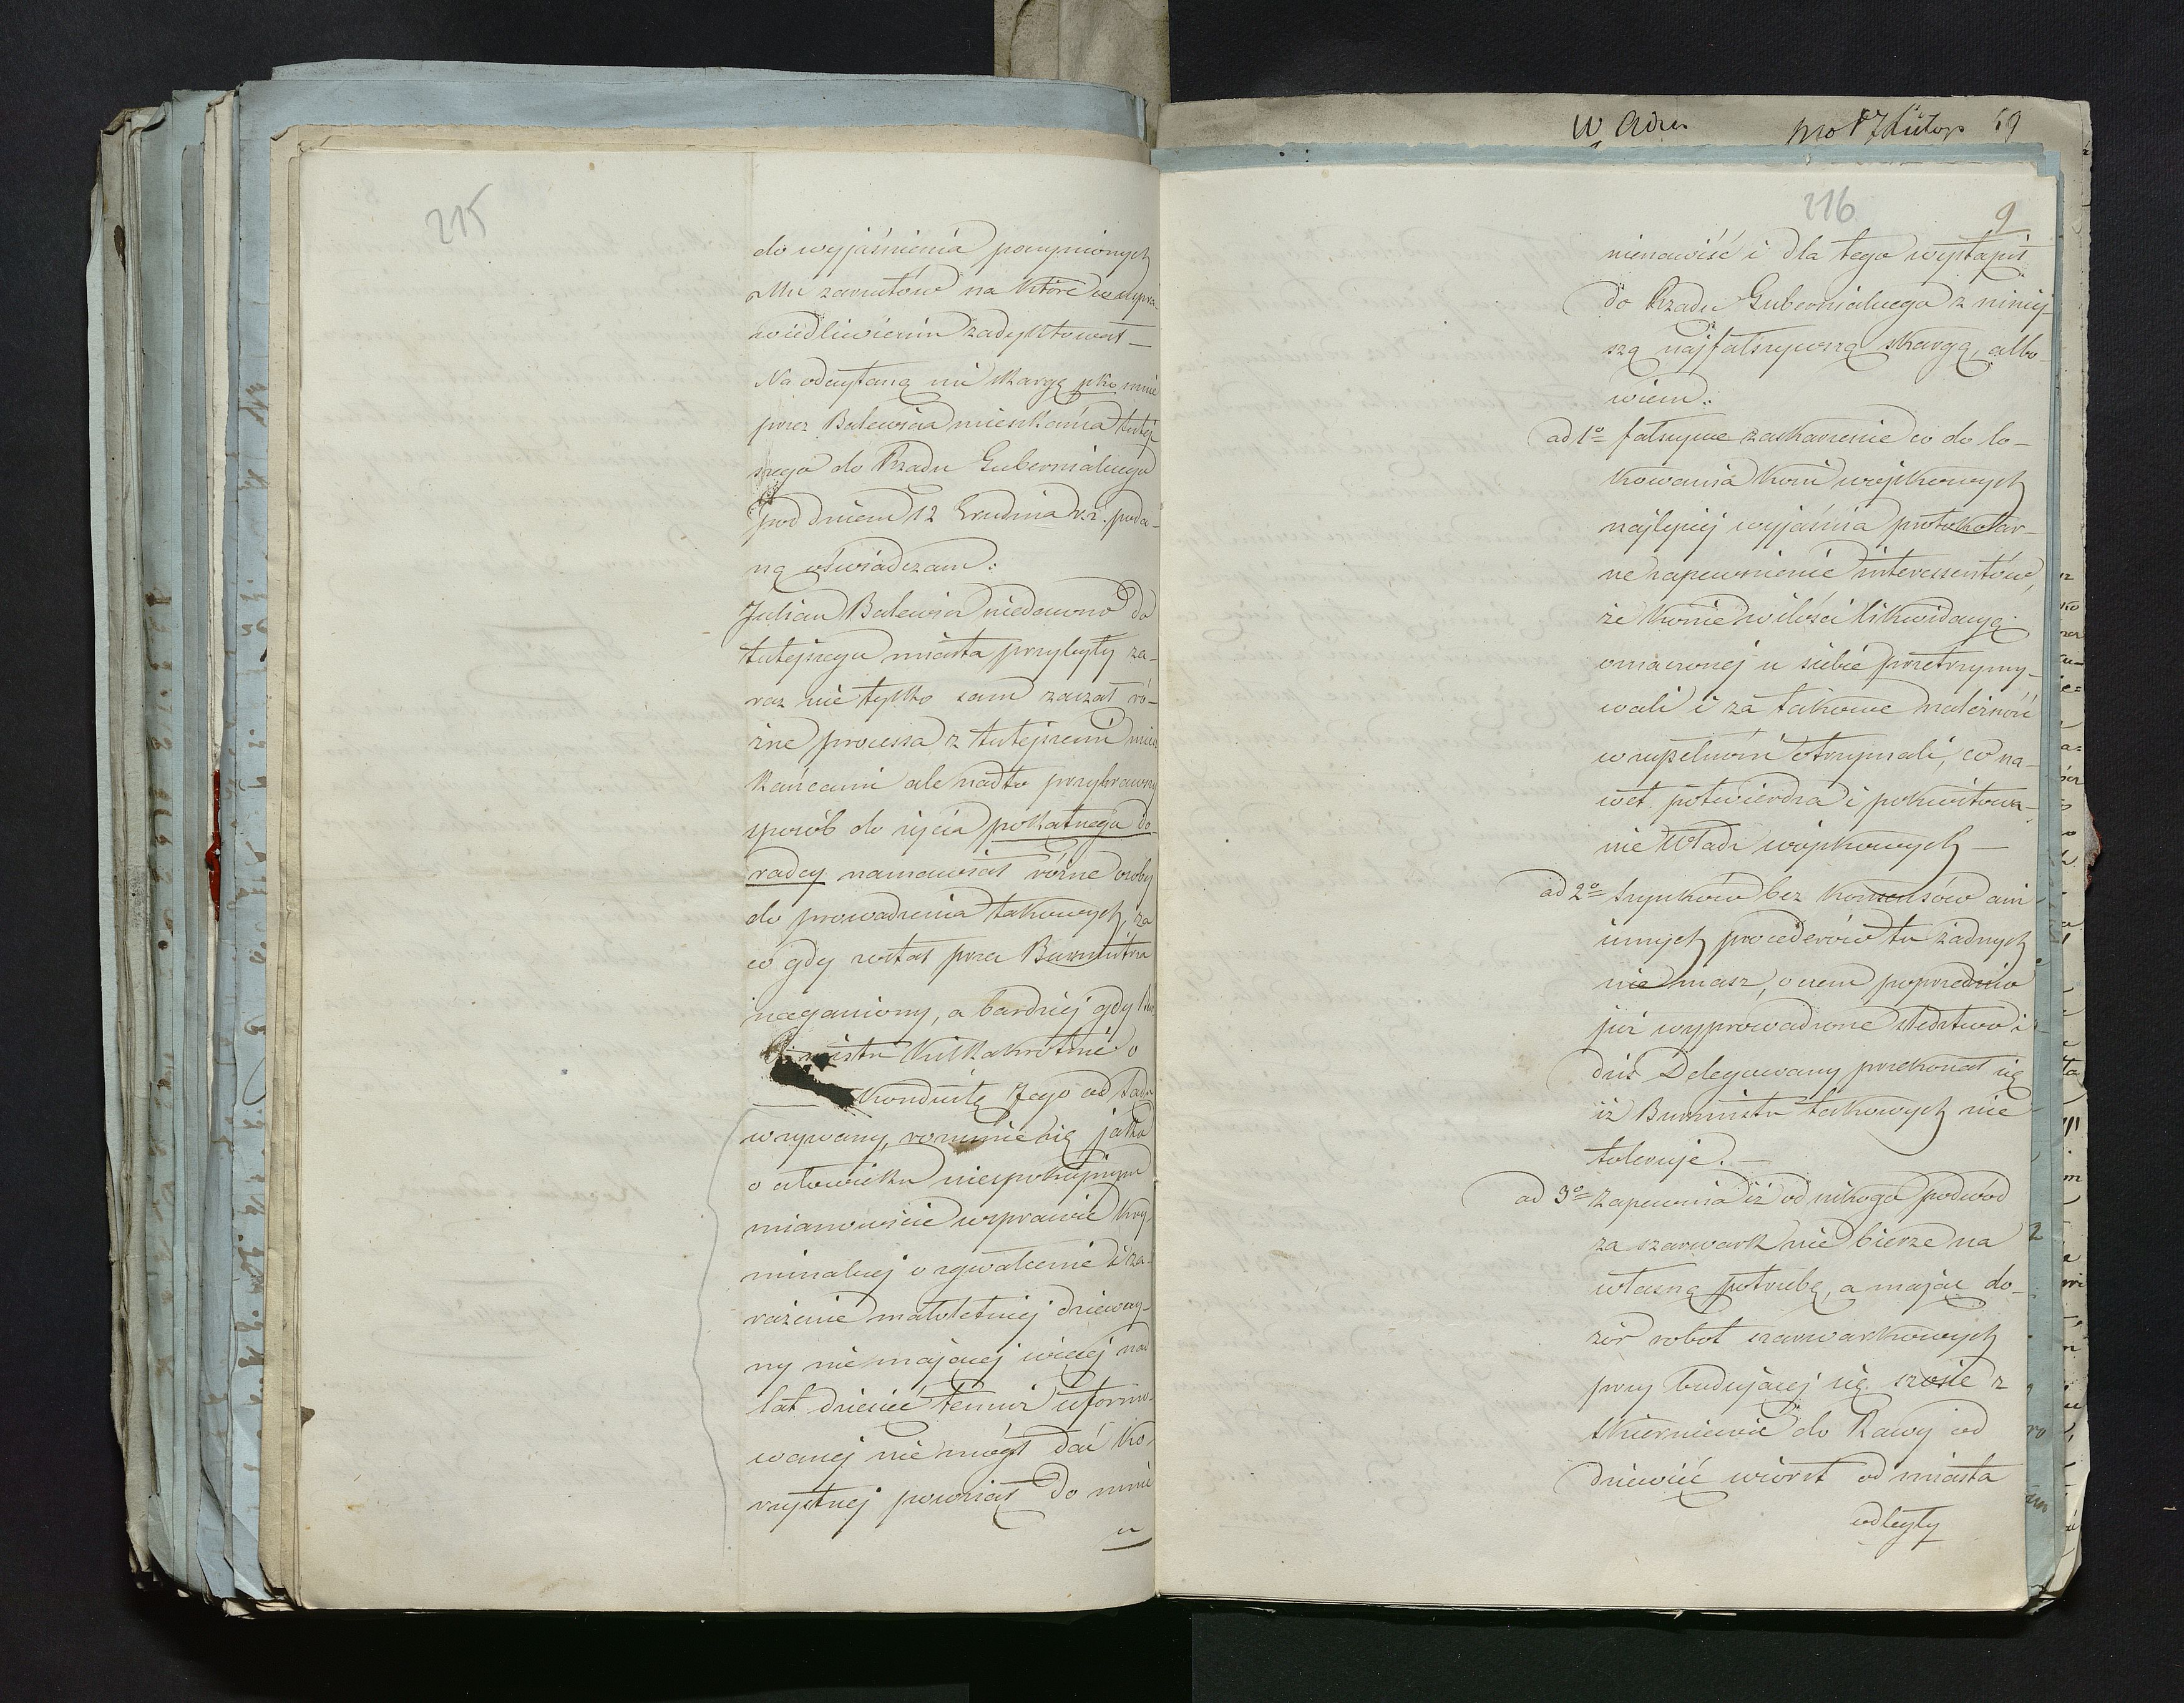 215
do wyjaśnienia poczynionych
Mu zarzutów na które w uspra
wiedliwieniu zadyktował —
Na odczytaną mi skargę pko mnie
przez Balewicza mieszkańca tutej
szego do Rządu Gubernialnego
pod dniem 12 Grudnia r. z. poda-
ną oświadczam:
Julian Balewicz niedawno do
tutejszego miasta przybyły za-
raz nie tylko sam zaczął ró-
żne processa z tutejszemi miesz
kańcami ale nadto przybrawszy
sposób do życia pokątnego do-
radcy namawiał różne osoby
do prowadzenia takowych, za
co gdy został przez Burmistrza
naganiony, a bardziej gdy Bur
mistrz kilkakrotnie o
konduitę Jego od Sądu
wzywany, rozumie się jako
o człowieku niespokojnym
mianowicie w sprawie kry-
minalnej o zgwałcenie i za-
rażenie małoletniej dziewczy-
ny niemającej więcej nad
lat dziesięć temuż uformo-
wanej nie mógł dać ko-
rzystnej powziął do mnie
n
W Adzn pro 17 Lutego 69
216
9
nienawiść i dla tego wystąpił
do Rządu Gubernialnego z niniej
szą najfałszywszą skargą, albo-
wiem:
ad 1o fałszywe zaskarżenie co do lo-
kowania koni wojskowych
najlepiej wyjaśnia protokólar-
ne zapewnienie interessentów,
że konie w ilości likwidacyą
oznaczonej u siebie przetrzymy-
wali i za takowe należność
w zupełności otrzymali, co na-
wet potwierdza i pokwitowa-
nie Władz wojskowych —
ad 2o Szynków bez konsensów ani
innych procederów tu żadnych
nie masz, o czem poprzednio
już wyprowadzone śledztwo i
dziś Delegowany przekonał się
iż Burmistrz takowych nie
toleruje. —
ad 3o Zapewnia iż od nikogo podwód
za szarwark nie bierze na
własną potrzebę, a mając do-
zór robót szarwarkowych
przy budującej się szosie z
Skierniewic do Rawy od
dziewięć wiorst od miasta
odległy